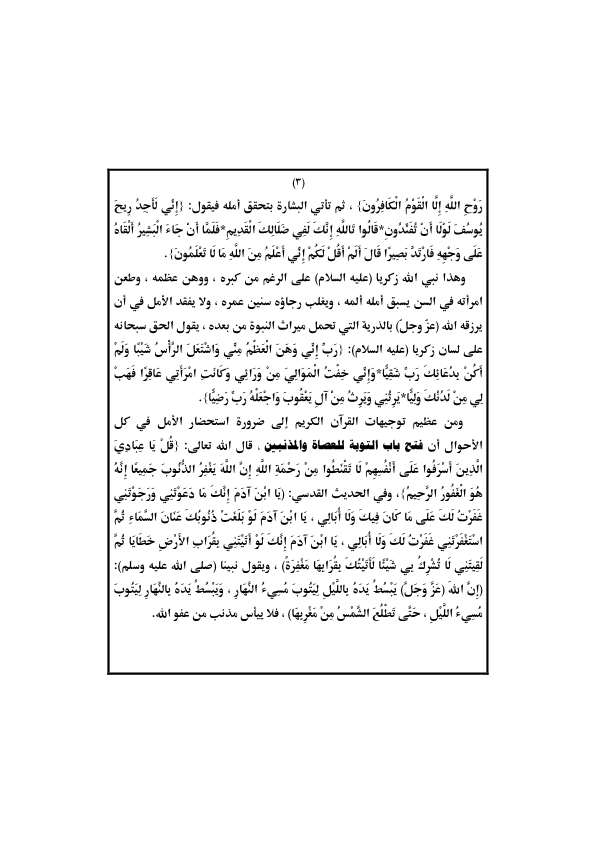 (٣)
رَوْحِ اللَّهِ إِلَّا الْقَوْمُ الْكَافِرُونَ} ، ثم تأتي البشارة بتحقق أمله فيقول: {إِنِّي لَأَجِدُ رِيحَ
يُوسُفَ لَوْلَا أَنْ تُفَنِّدُونِ*قَالُوا تَاللَّهِ إِنَّكَ لَفِي ضَلَالِكَ الْقَدِيمِ*فَلَمَّا أَنْ جَاءَ الْبَشِيرُ أَلْقَاهُ
عَلَى وَجْهِهِ فَارْتَدَّ بَصِيرًا قَالَ أَلَمْ أَقُلْ لَكُمْ إِنِّي أَعْلَمُ مِنَ اللَّهِ مَا لَا تَعْلَمُونَ}.
وهذا نبي الله زكريا (عليه السلام) على الرغم من كبره ، ووهن عظمه ، وطعن
امرأته في السن يسبق أمله ألمه ، ويغلب رجاؤه سنين عمره ، ولا يفقد الأمل في أن
يرزقه الله (عزّ وجلّ) بالذرية التي تحمل ميراث النبوة من بعده ، يقول الحق سبحانه
على لسان زكريا (عليه السلام): {رَبِّ إِنِّي وَهَنَ الْعَظْمُ مِنِّي وَاشْتَعَلَ الرَّأْسُ شَيْبًا وَلَمْ
أَكُنْ بِدُعَائِكَ رَبِّ شَقِيًّا*وَإِنِّي خِفْتُ الْمَوَالِيَ مِنْ وَرَائِي وَكَانَتِ امْرَأَتِي عَاقِرًا فَهَبْ
لِي مِنْ لَدُنْكَ وَلِيًّا*يَرِثُنِي وَيَرِثُ مِنْ آلِ يَعْقُوبَ وَاجْعَلْهُ رَبِّ رَضِيًّا}.
ومن عظيم توجيهات القرآن الكريم إلى ضرورة استحضار الأمل في كل
الأحوال أن فتح باب التوبة للعصاة والمذنبين ، قال الله تعالى: {قُلْ يَا عِبَادِيَ
الَّذِينَ أَسْرَفُوا عَلَى أَنْفُسِهِمْ لَا تَقْنَطُوا مِنْ رَحْمَةِ اللَّهِ إِنَّ اللَّهَ يَغْفِرُ الذُّنُوبَ جَمِيعًا إِنَّهُ
هُوَ الْغَفُورُ الرَّحِيمُ}، وفي الحديث القدسي: (يَا ابْنَ آدَمَ إِنَّكَ مَا دَعَوْتَنِي وَرَجَوْتَنِي
غَفَرْتُ لَكَ عَلَى مَا كَانَ فِيكَ وَلَا أُبَالِي ، يَا ابْنَ آدَمَ لَوْ بَلَغَتْ ذُنُوبُكَ عَنَانَ السَّمَاءِ ثُمَّ
اسْتَغْفَرْتَنِي غَفَرْتُ لَكَ وَلَا أُبَالِي ، يَا ابْنَ آدَمَ إِنَّكَ لَوْ أَتَيْتَنِي بِقُرَابِ الأَرْضِ خَطَايَا ثُمَّ
لَقِيتَنِي لَا تُشْرِكُ بِي شَيْئًا لَأَتَيْتُكَ بِقُرَابِهَا مَغْفِرَةً) ، ويقول نبينا (صلى الله عليه وسلم):
(إِنَّ اللهَ (عَزَّ وَجَلَّ) يَبْسُطُ يَدَهُ بِاللَّيْلِ لِيَتُوبَ مُسِيءُ النَّهَارِ ، وَيَبْسُطُ يَدَهُ بِالنَّهَارِ لِيَتُوبَ
مُسِيءُ اللَّيْلِ ، حَتَّى تَطْلُعَ الشَّمْسُ مِنْ مَغْرِبِهَا) ، فلا ييأس مذنب من عفو الله.